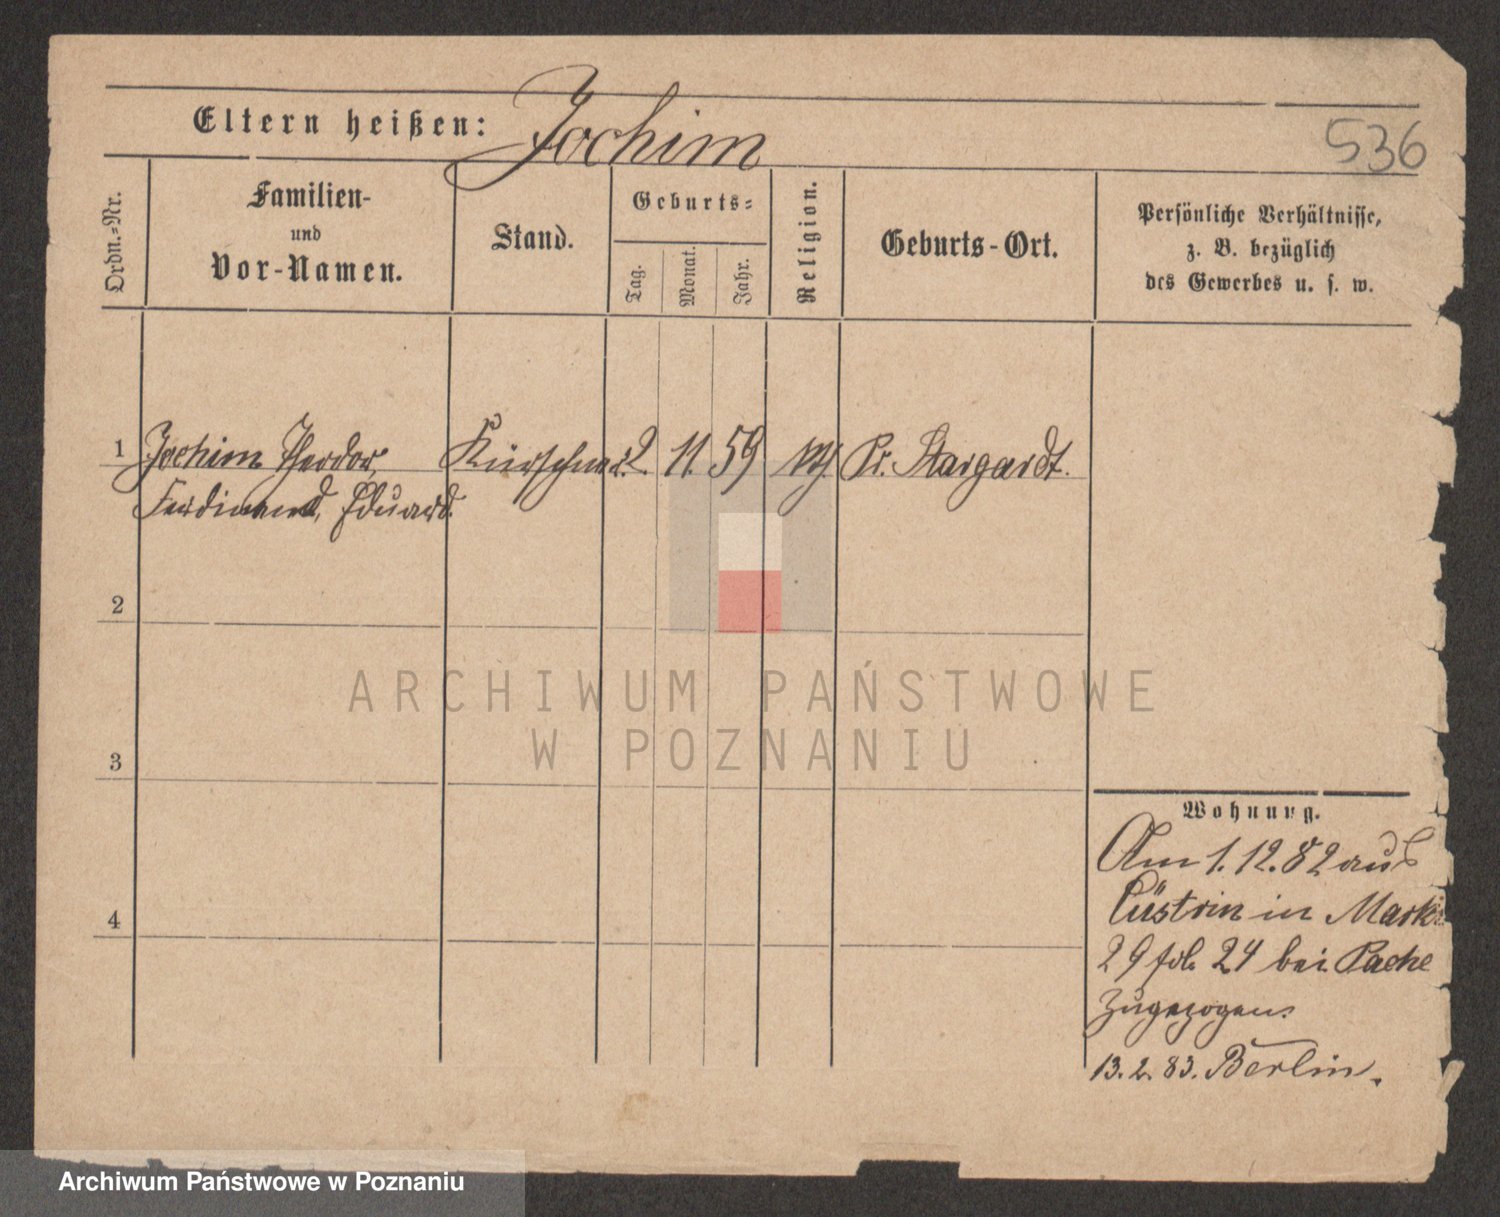 Eltern heißen: Jochim
536
Ordn.-Nr.
Familien-
und
Vor-Namen.
Stand.
Geburts-
Tag.
Monat.
Jahr.
Religion.
Geburts-Ort.
Persönliche Verhältnisse,
z. B. bezüglich
des Gewerbes u. s. w.
1 Jochim Theodor, Kürschner 2. 11. 59 Pr. Stargardt.
Ferdinand, Eduard.
2
ARCHIWUM PAŃSTWOWE
W POZNANIU
3
4
Wohnung.
Am 1.12.82 aus
Cüstrin in Markt
29 fol. 24 bei Pache
zugezogen.
13.2.83. Berlin.
Archiwum Państwowe w Poznaniu